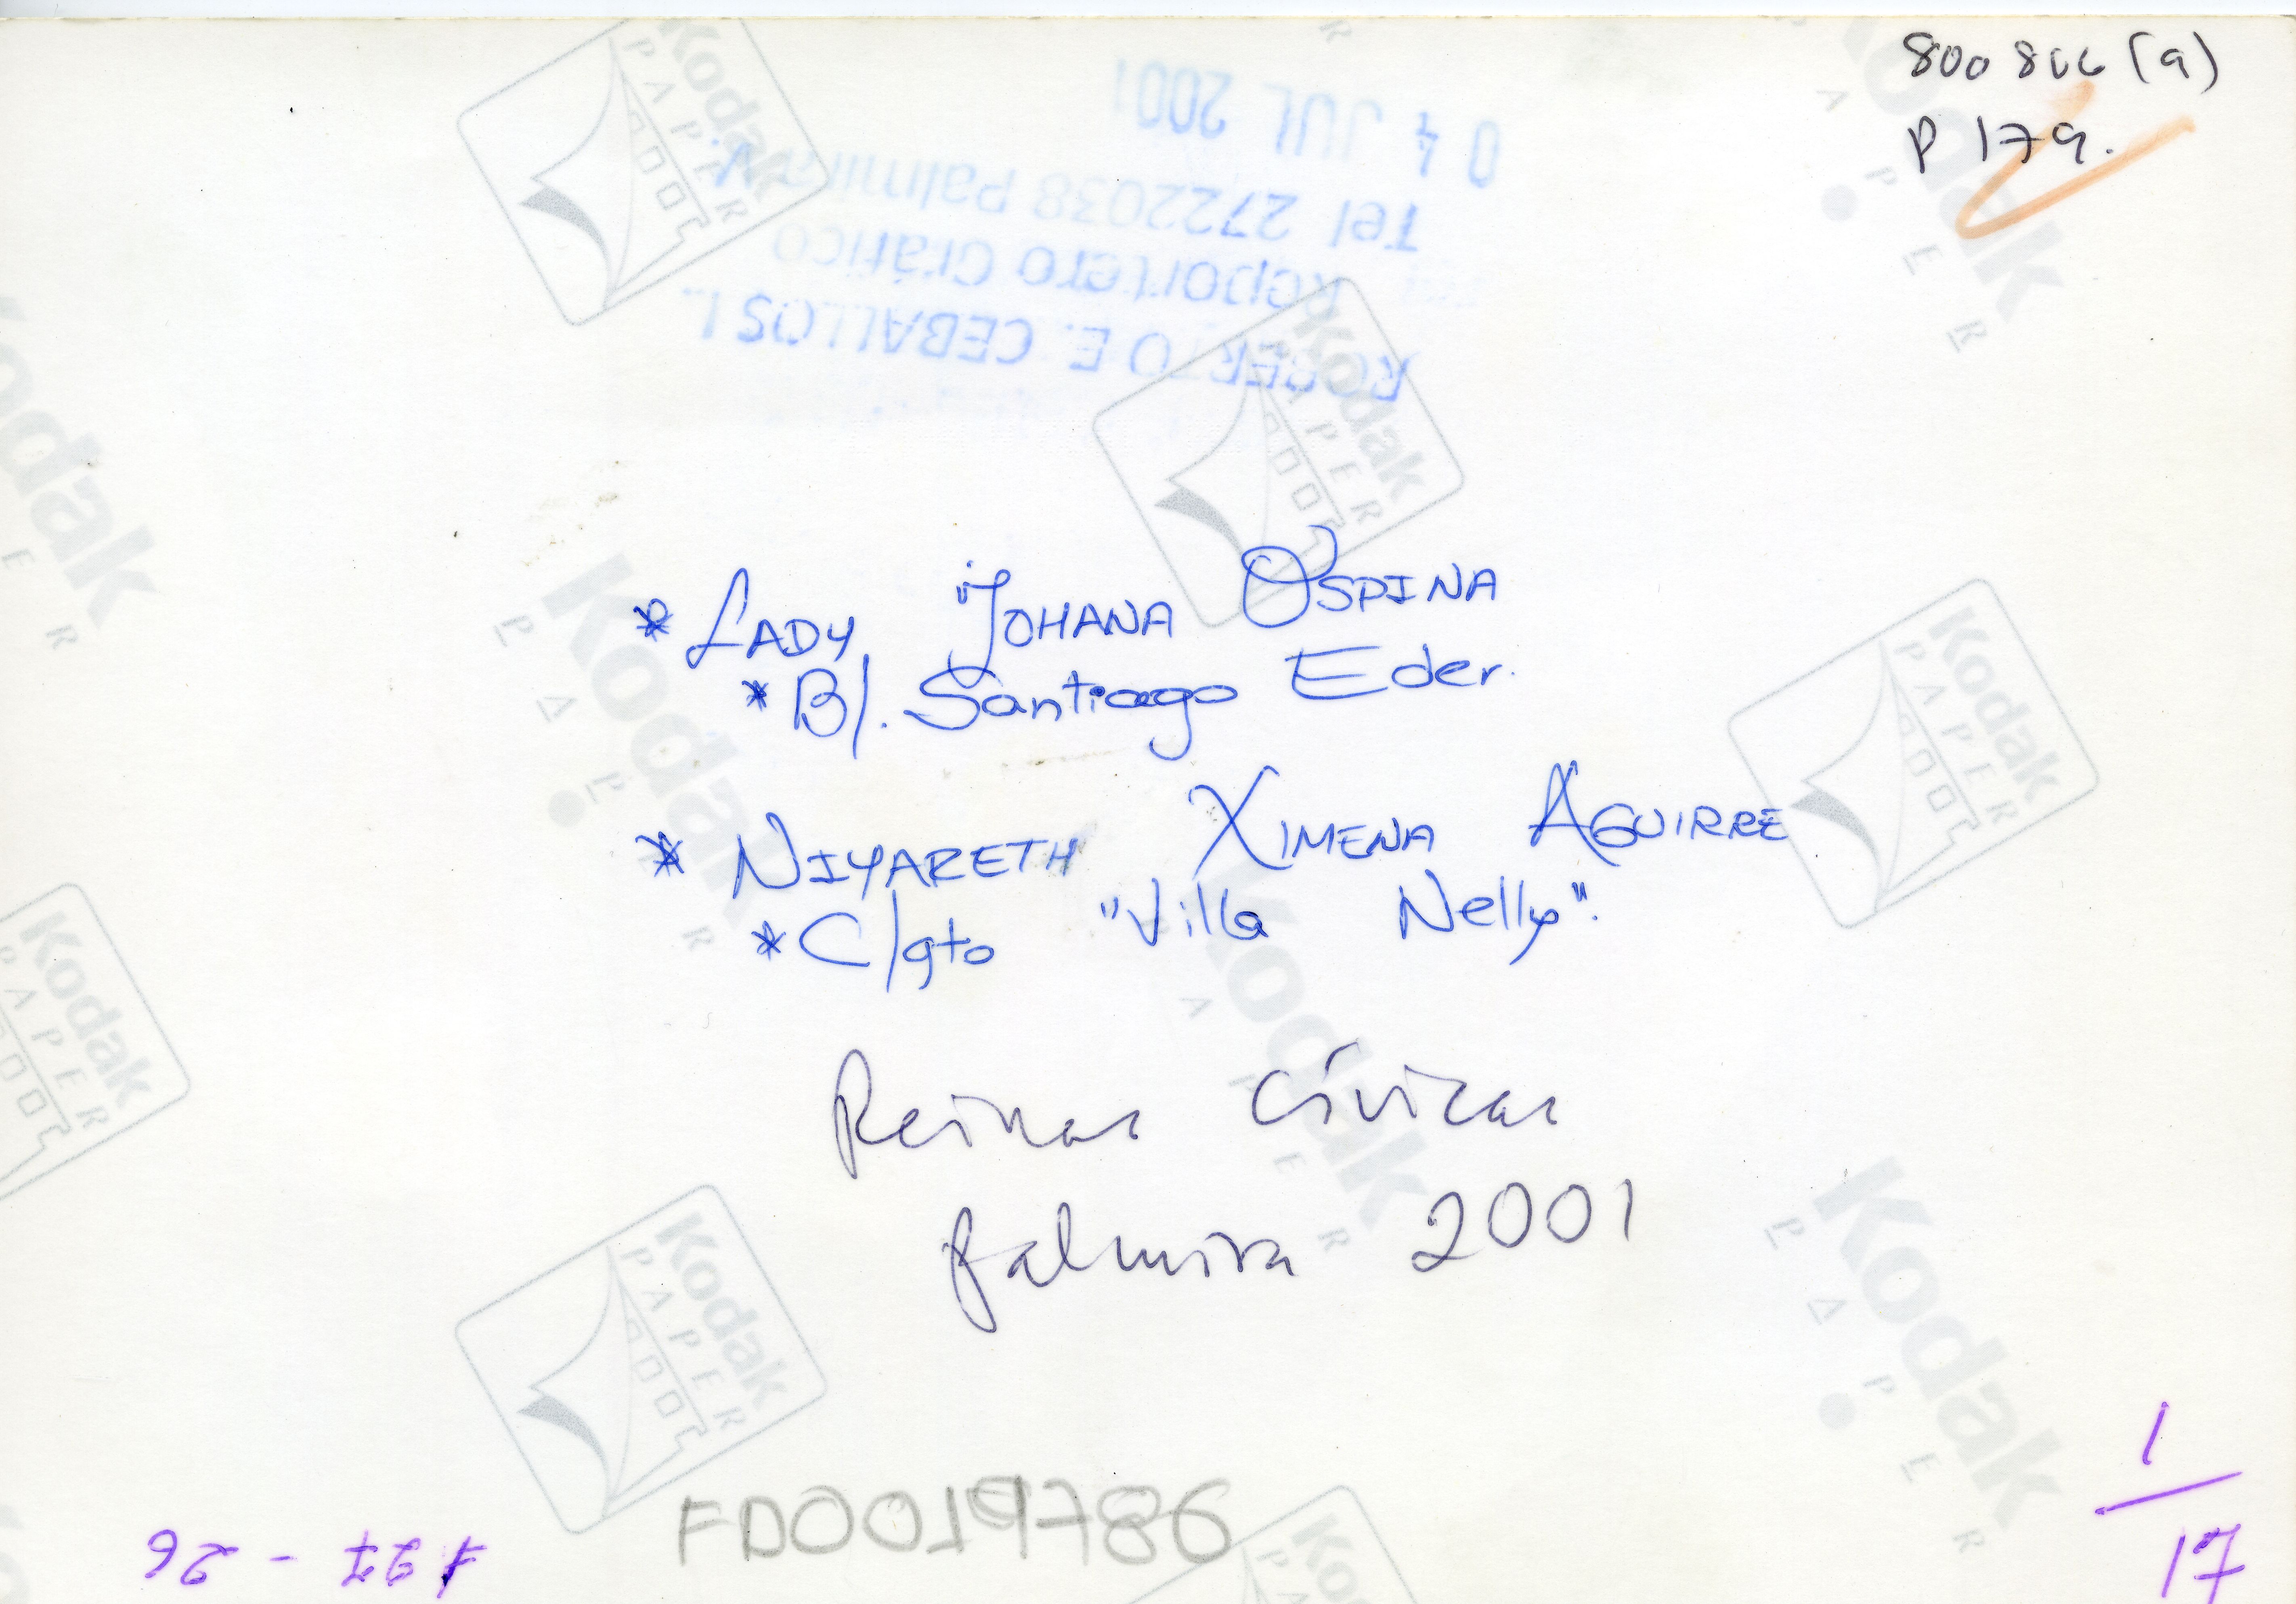 800 806 (a)
P 179.
ROBERTO E. CEBALLOS L.
Reportero Gráfico
Tel 2722038 Palmira V.
04 JUL 2001
* LADY JOHANA OSPINA
* B/. Santiago Eder.
* NIYARETH XIMENA AGUIRRE
* C/gto "Villa Nelly".
Reinas Cívicas
Palmira 2001
FD0019786
1
17
Kodak
PAPER